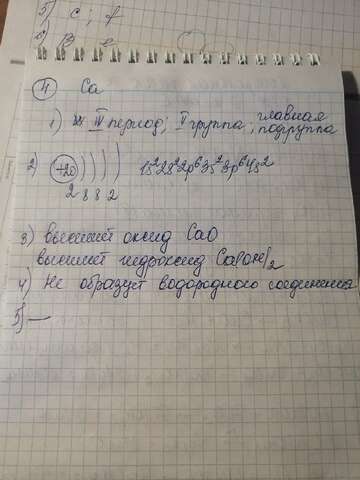 5) с; f
4 Ca
1) IV период, II группа, главная
подгруппа
2) +20 ) ) ) ) 1s²2s²2p⁶3s²3p⁶4s²
2 8 8 2
3) высший оксид CaO
высший гидроксид Ca(OH)₂
4) Не образует водородного соединения
5) —